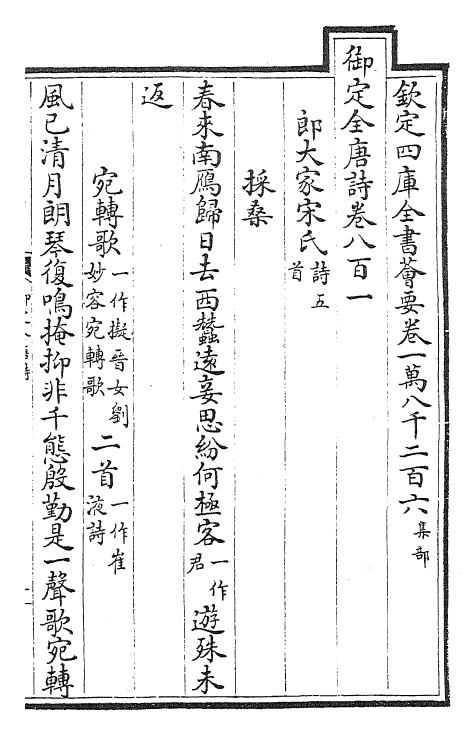 欽定四庫全書薈要卷一萬八千二百六集部
御定全唐詩卷八百一
郎大家宋氏詩五首
採桑
春來南鴈歸日去西蠶遠妾思紛何極客一作君遊殊未
返
宛轉歌一作擬晉女劉妙容宛轉歌二首一作崔液詩
風已清月朗琴復鳴掩抑非千態殷勤是一聲歌宛轉